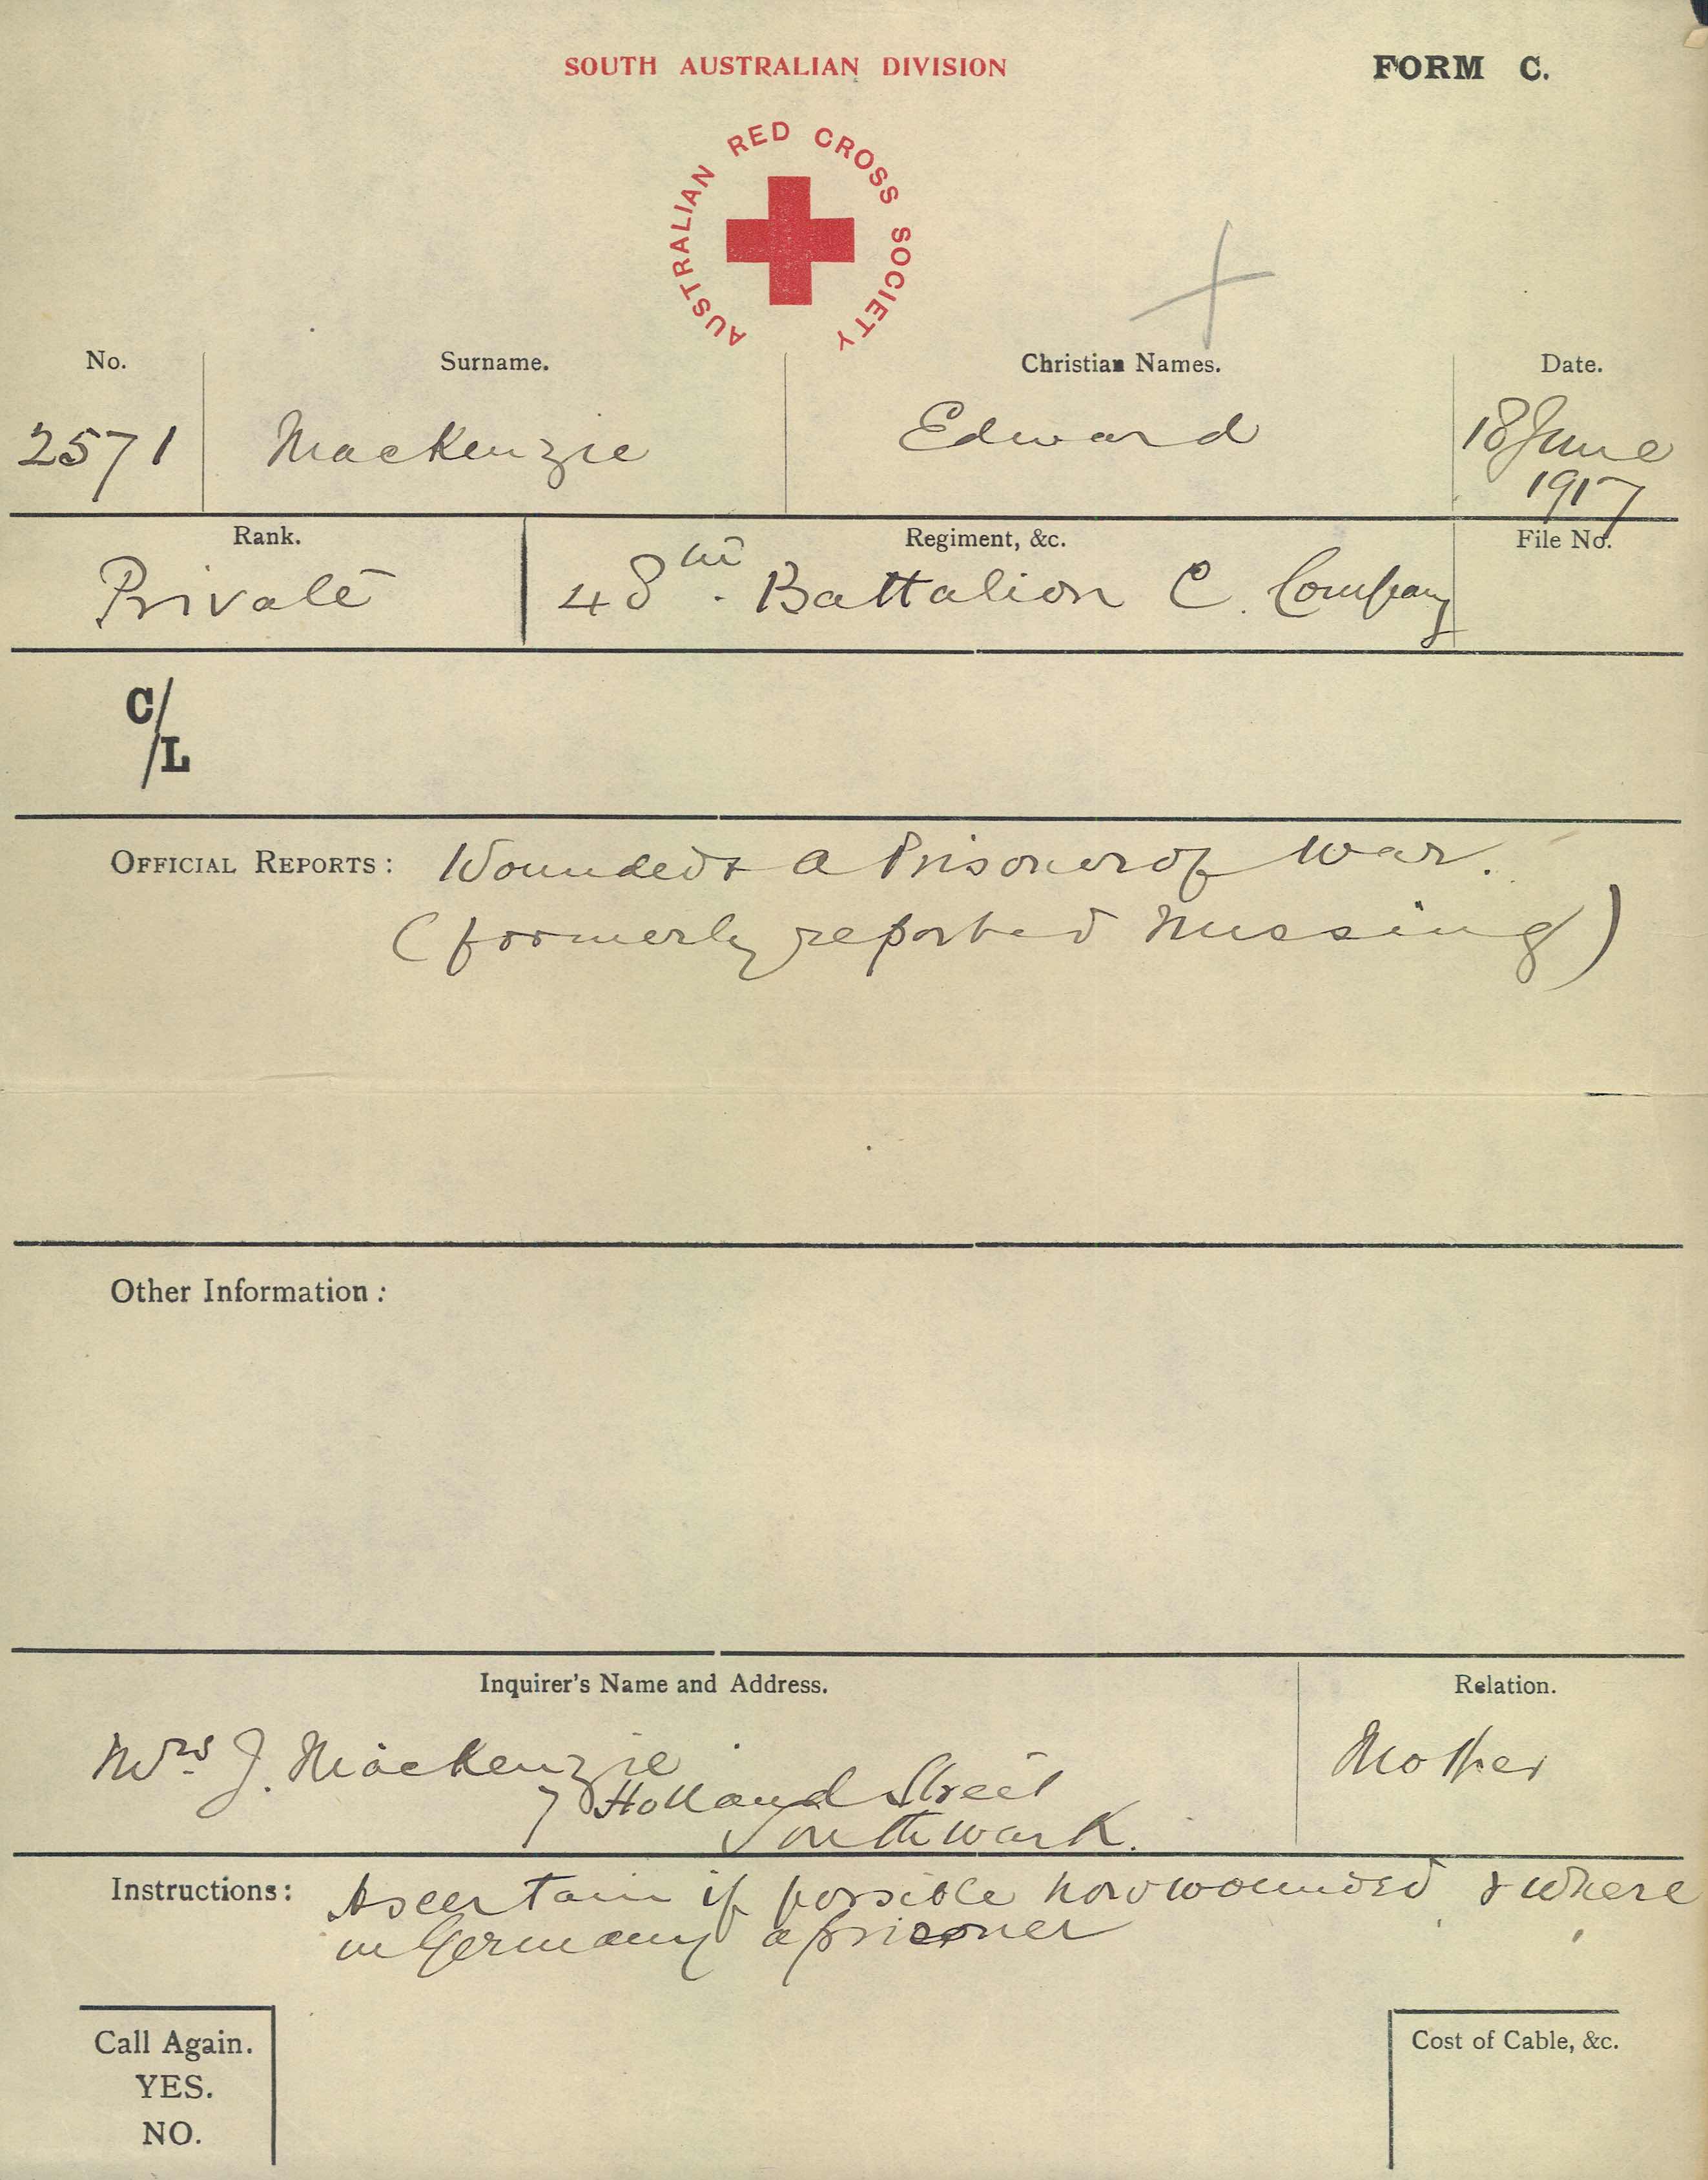 SOUTH AUSTRALIAN DIVISION
FORM C.
AUSTRALIAN RED CROSS SOCIETY
No. Surname. Christian Names. Date.
2571 MacKenzie Edward 18 June
1917
Rank. Regiment, &c. File No.
Private 48th. Battalion C. Company
C/L
OFFICIAL REPORTS: Wounded & a Prisoner of War.
(formerly reported Missing)
Other Information:
Inquirer's Name and Address. Relation.
Mrs J. MacKenzie Mother
7 Holland Street
Southwark.
Instructions: Ascertain if possible how wounded & where
in Germany a prisoner
Call Again. Cost of Cable, &c.
YES.
NO.